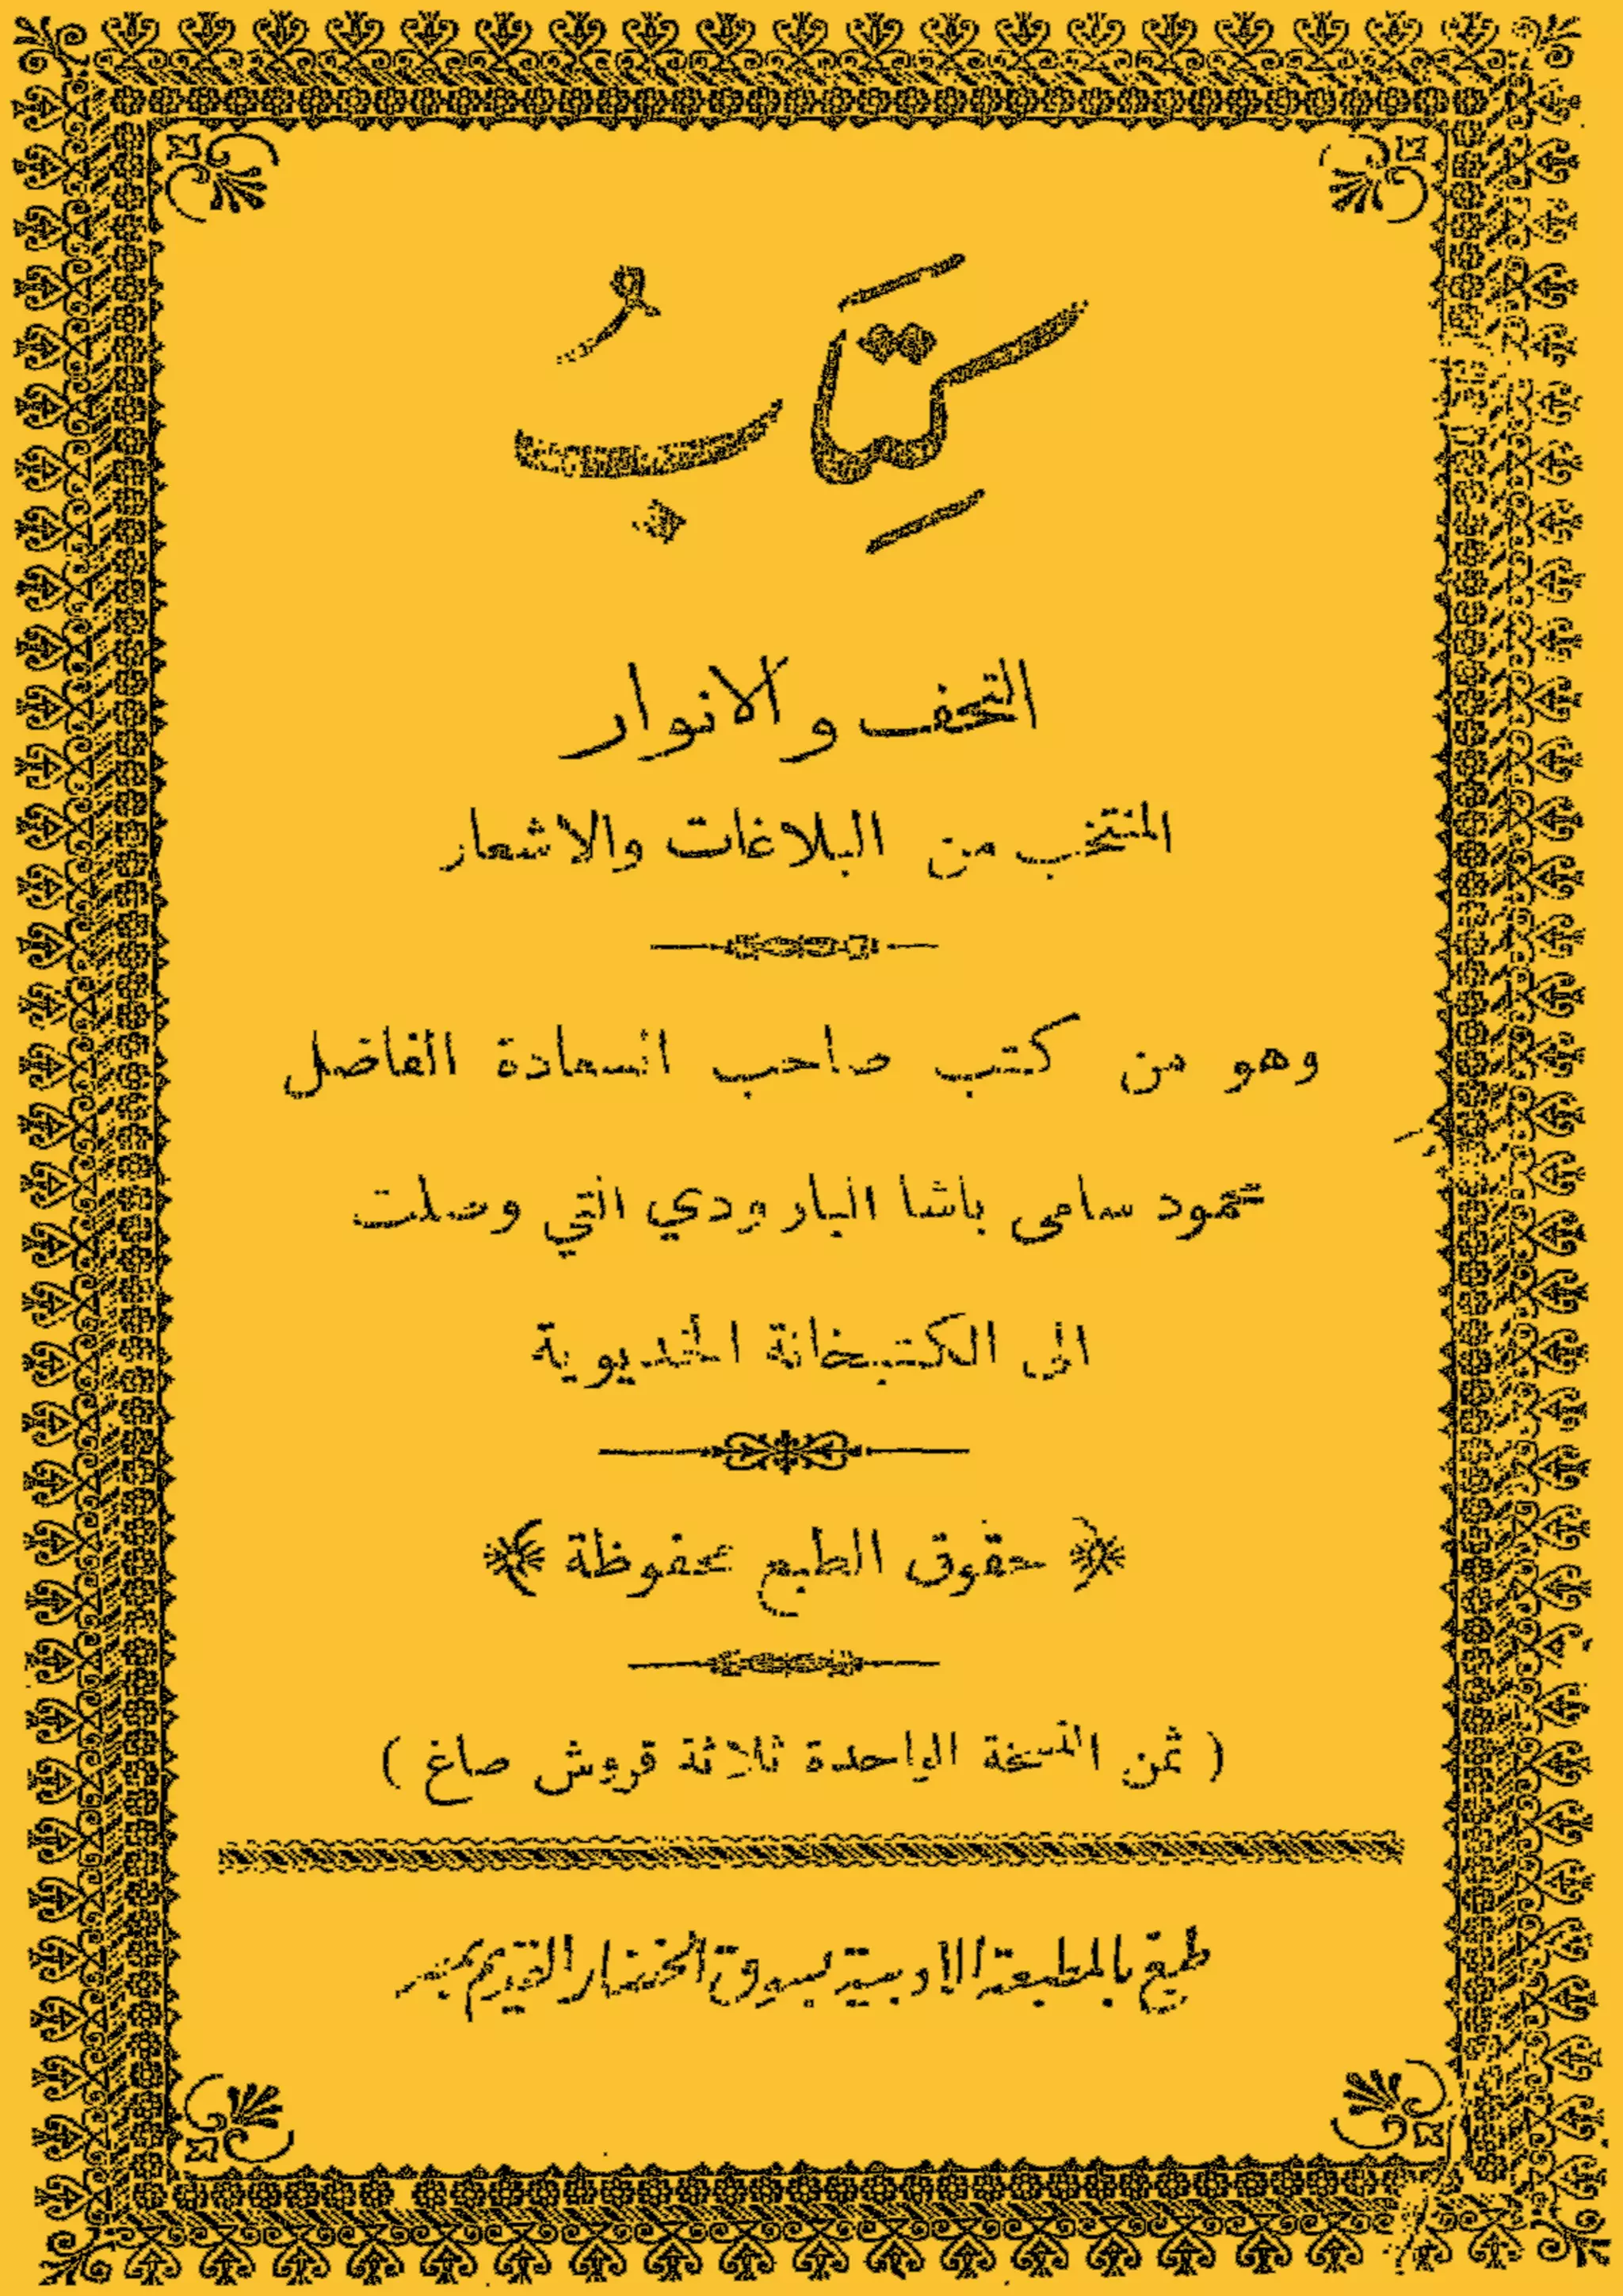 كِتَابُ
التحف والانوار
المنتخب من البلاغات والاشعار
وهو من كتب صاحب السعادة الفاضل
محمود سامى باشا البارودي التي وصلت
الى الكتبخانة الخديوية
﴿ حقوق الطبع محفوظة ﴾
( ثمن النسخة الواحدة ثلاثة قروش صاغ )
طبع بالمطبعة الادبية بسوق الخضار القديم بمصر